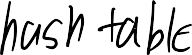 hash table